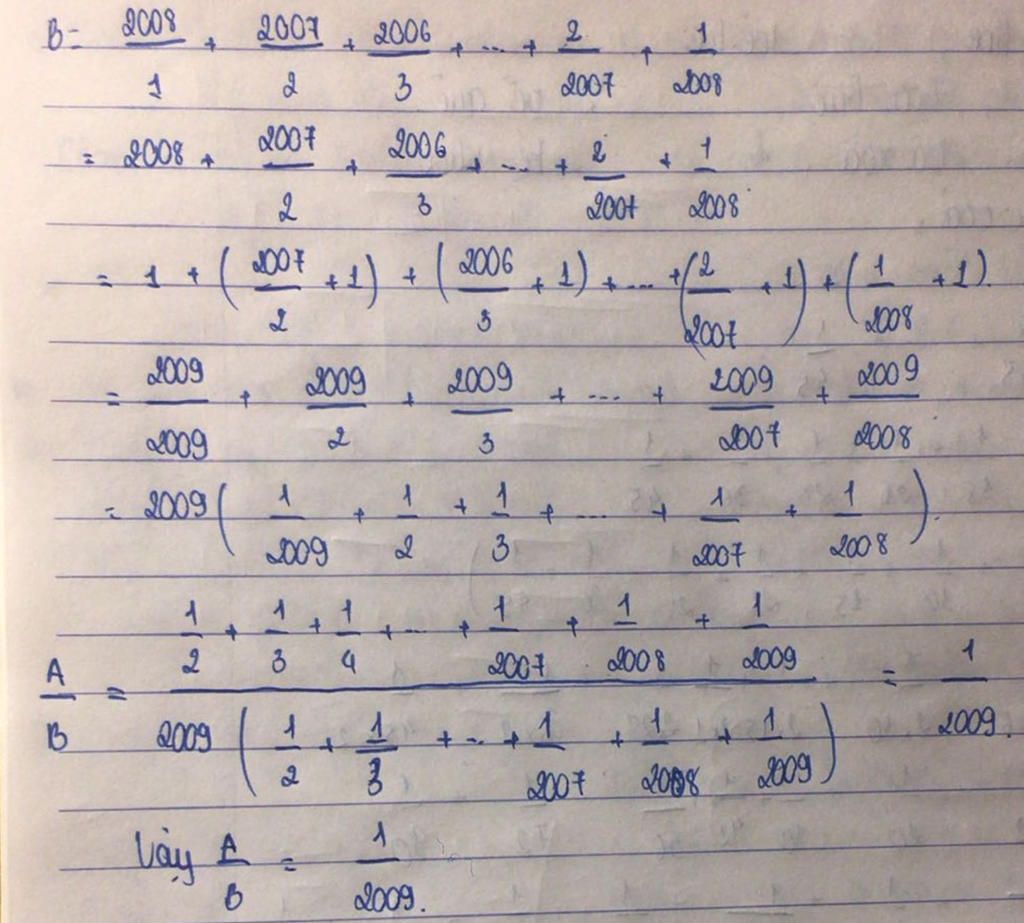 B = 2008/1 + 2007/2 + 2006/3 + ... + 2/2007 + 1/2008
= 2008 + 2007/2 + 2006/3 + ... + 2/2007 + 1/2008
= 1 + (2007/2 + 1) + (2006/3 + 1) + ... + (2/2007 + 1) + (1/2008 + 1).
= 2009/2009 + 2009/2 + 2009/3 + ... + 2009/2007 + 2009/2008
= 2009(1/2009 + 1/2 + 1/3 + ... + 1/2007 + 1/2008).
A/B = (1/2 + 1/3 + 1/4 + ... + 1/2007 + 1/2008 + 1/2009)/(2009(1/2 + 1/3 + ... + 1/2007 + 1/2008 + 1/2009)) = 1/2009.
Vậy A/B = 1/2009.